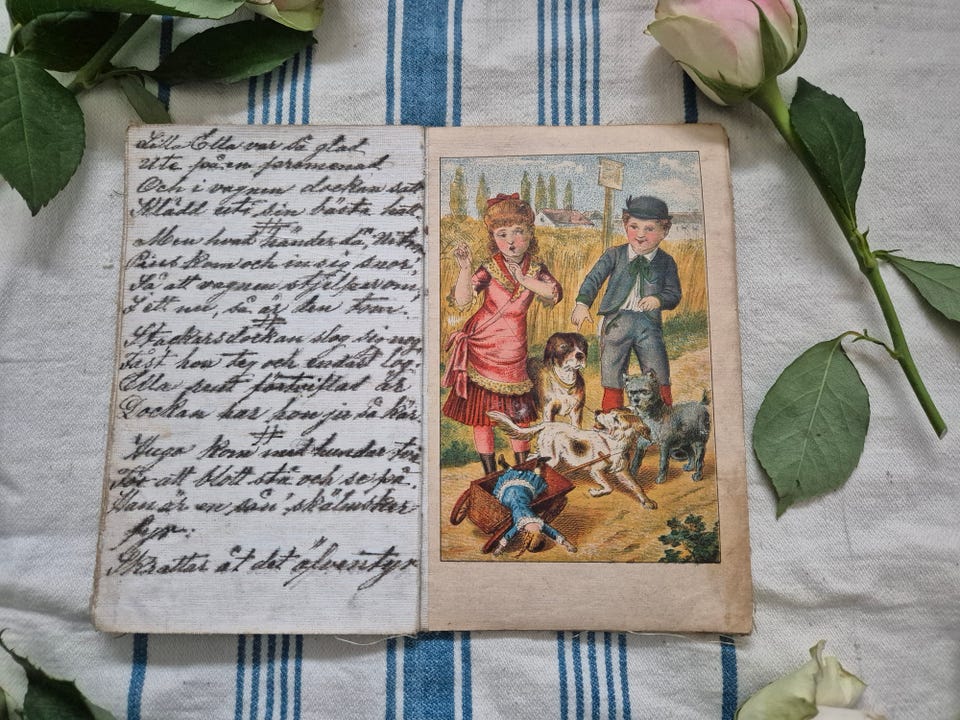 Lilla Ella var så glad
Ute på en promenad
Och i vagnen dockan satt
Klädd uti sin bästa hat.
#
Men hvad händer då,
kom och in sig snor,
Så att vagnen stjelper om,
I ett nu, så är den tom.
#
Stackars dockan slog sig nog
Fast hon teg och endast log.
Ella rent förtviflad är
Dockan har hon ju så kär.
#
Hugo kom med hundar två
För att blott stå och se på.
Han är en sån' skälmsker
fyr:
Skrattar åt det äfventyr